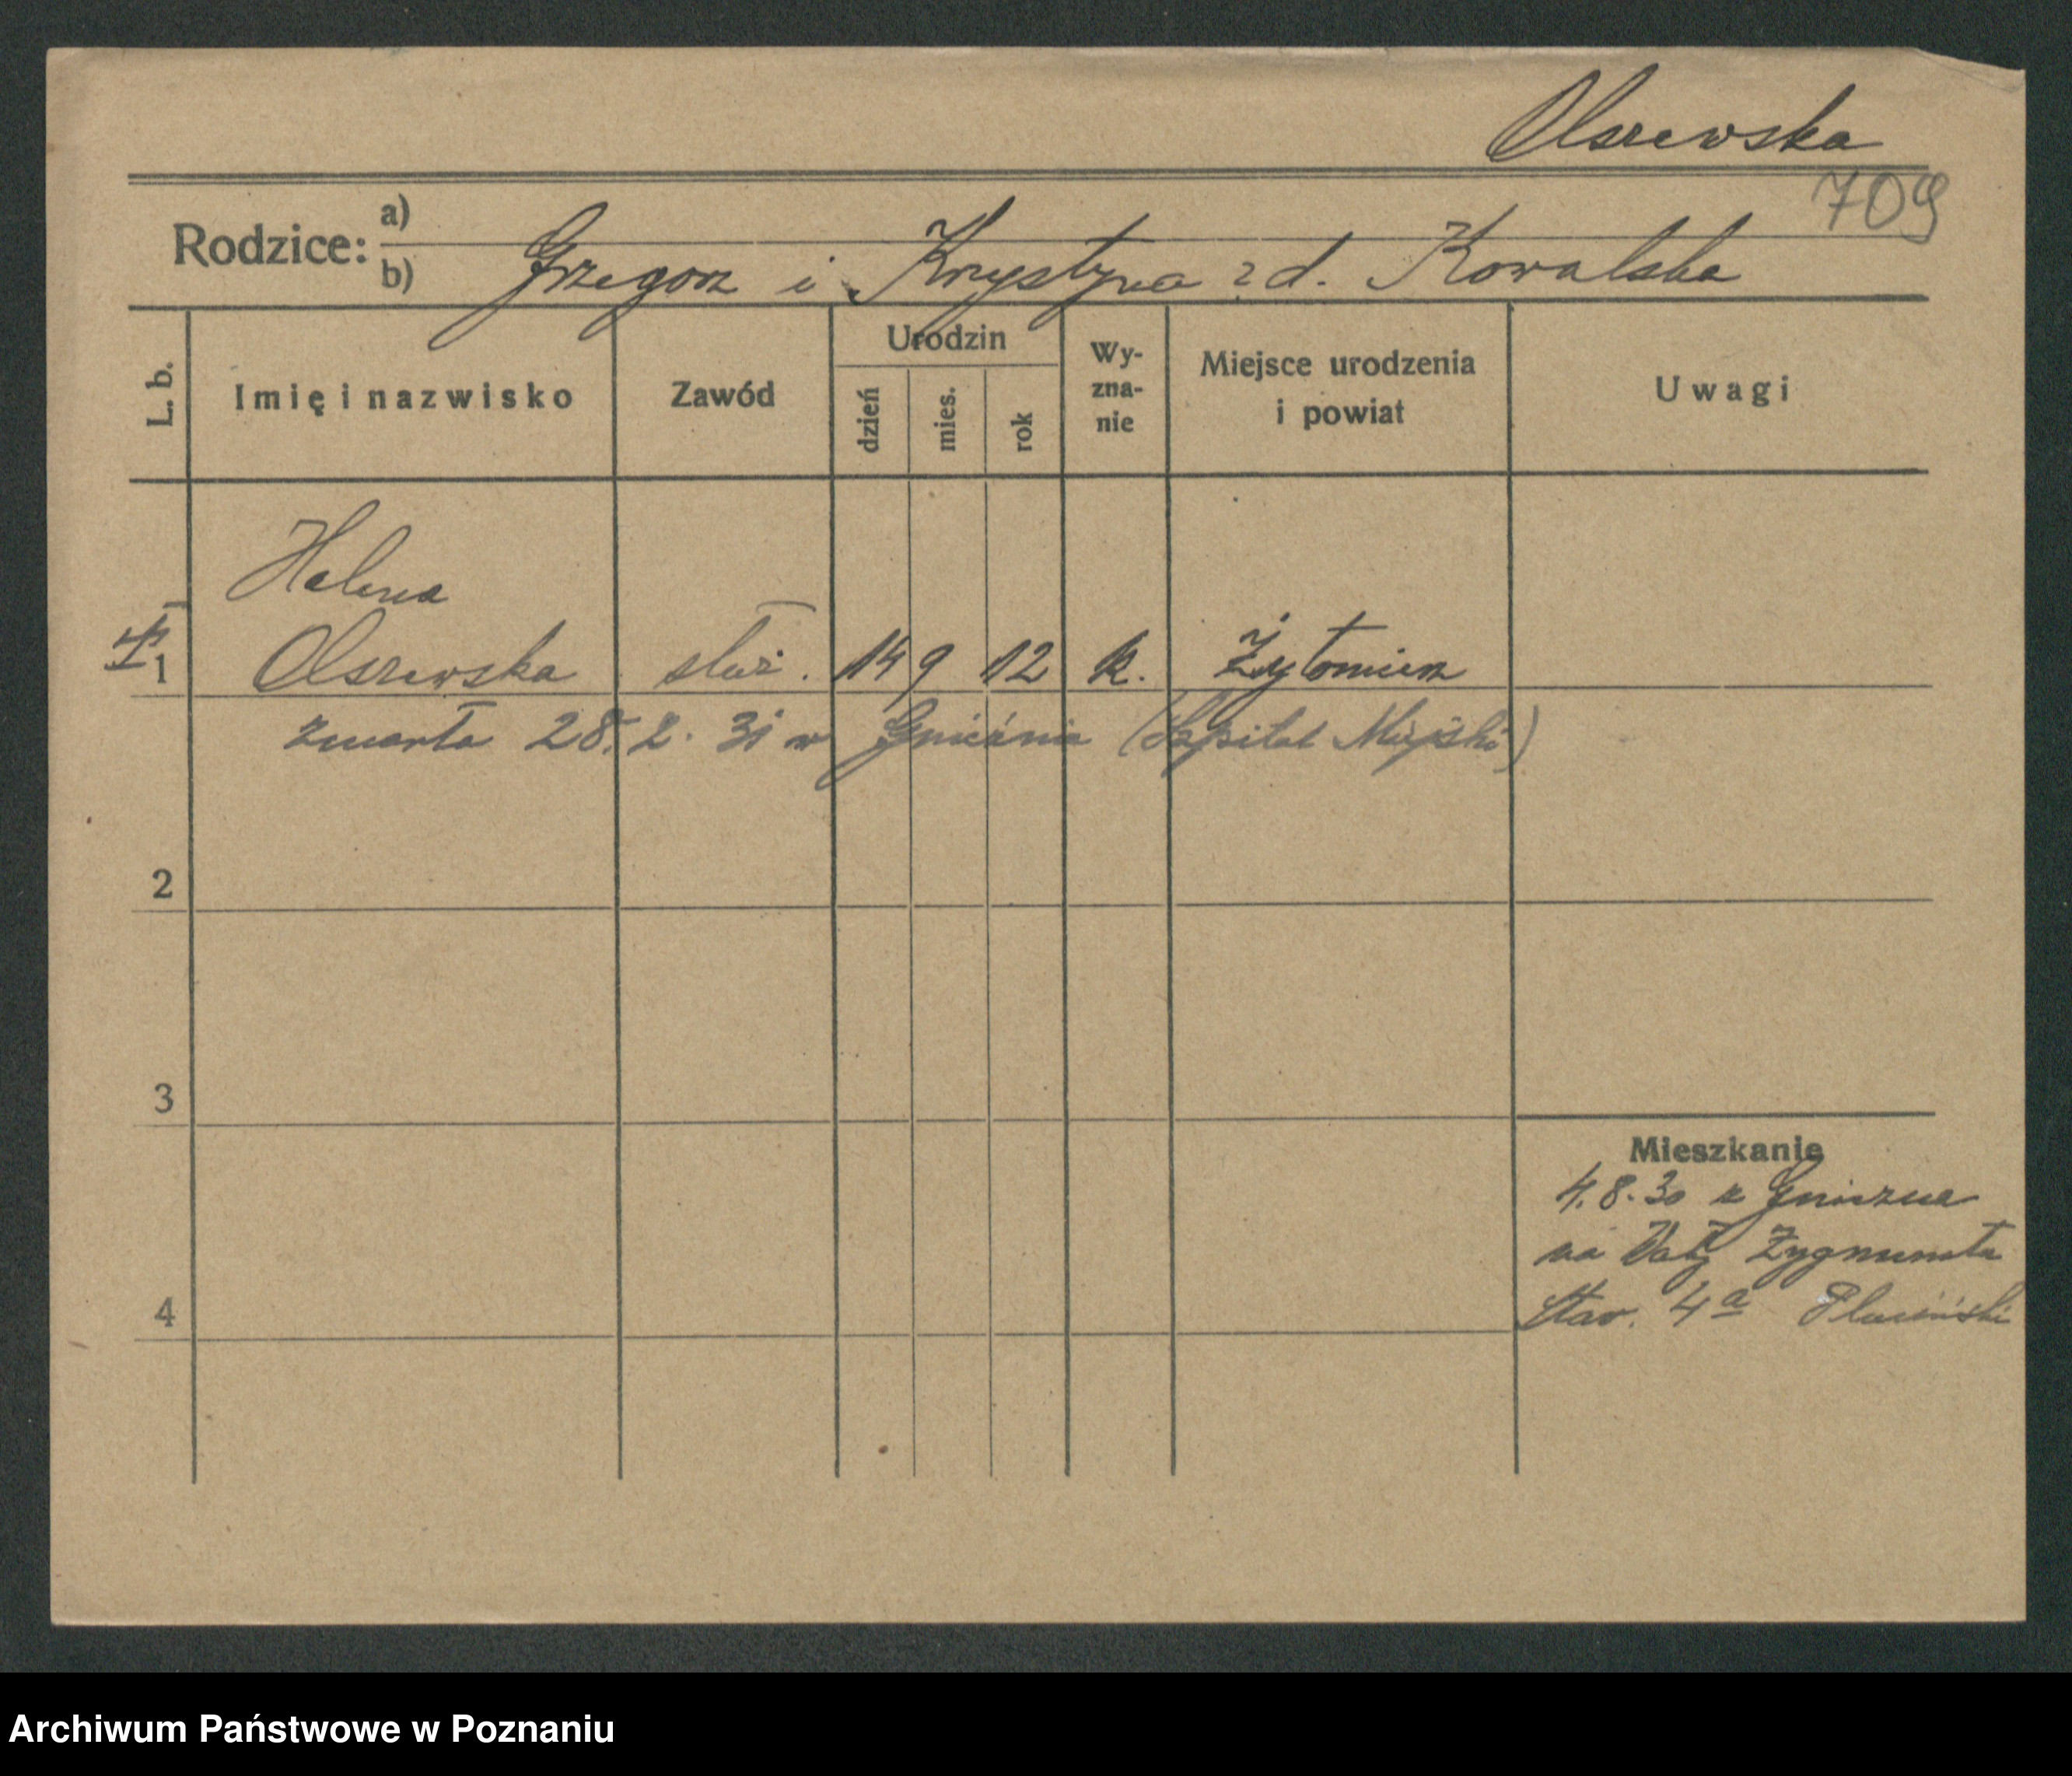 Olszewska
709
Rodzice: a)
b) Grzegorz i Krystyna z d. Kowalska
L. b. Imię i nazwisko Zawód Urodzin dzień mies. rok Wy-zna-nie Miejsce urodzenia i powiat Uwagi
Helena
1 Olszewska służ. 14 9 12 k. Żytomierz
zmarła 28. 2. 31 w Gnieźnie (Szpital Miejski)
2
3
Mieszkanie
4.8.30 z Gniezna
na Wały Zygmunta
4
Star. 4a
Archiwum Państwowe w Poznaniu